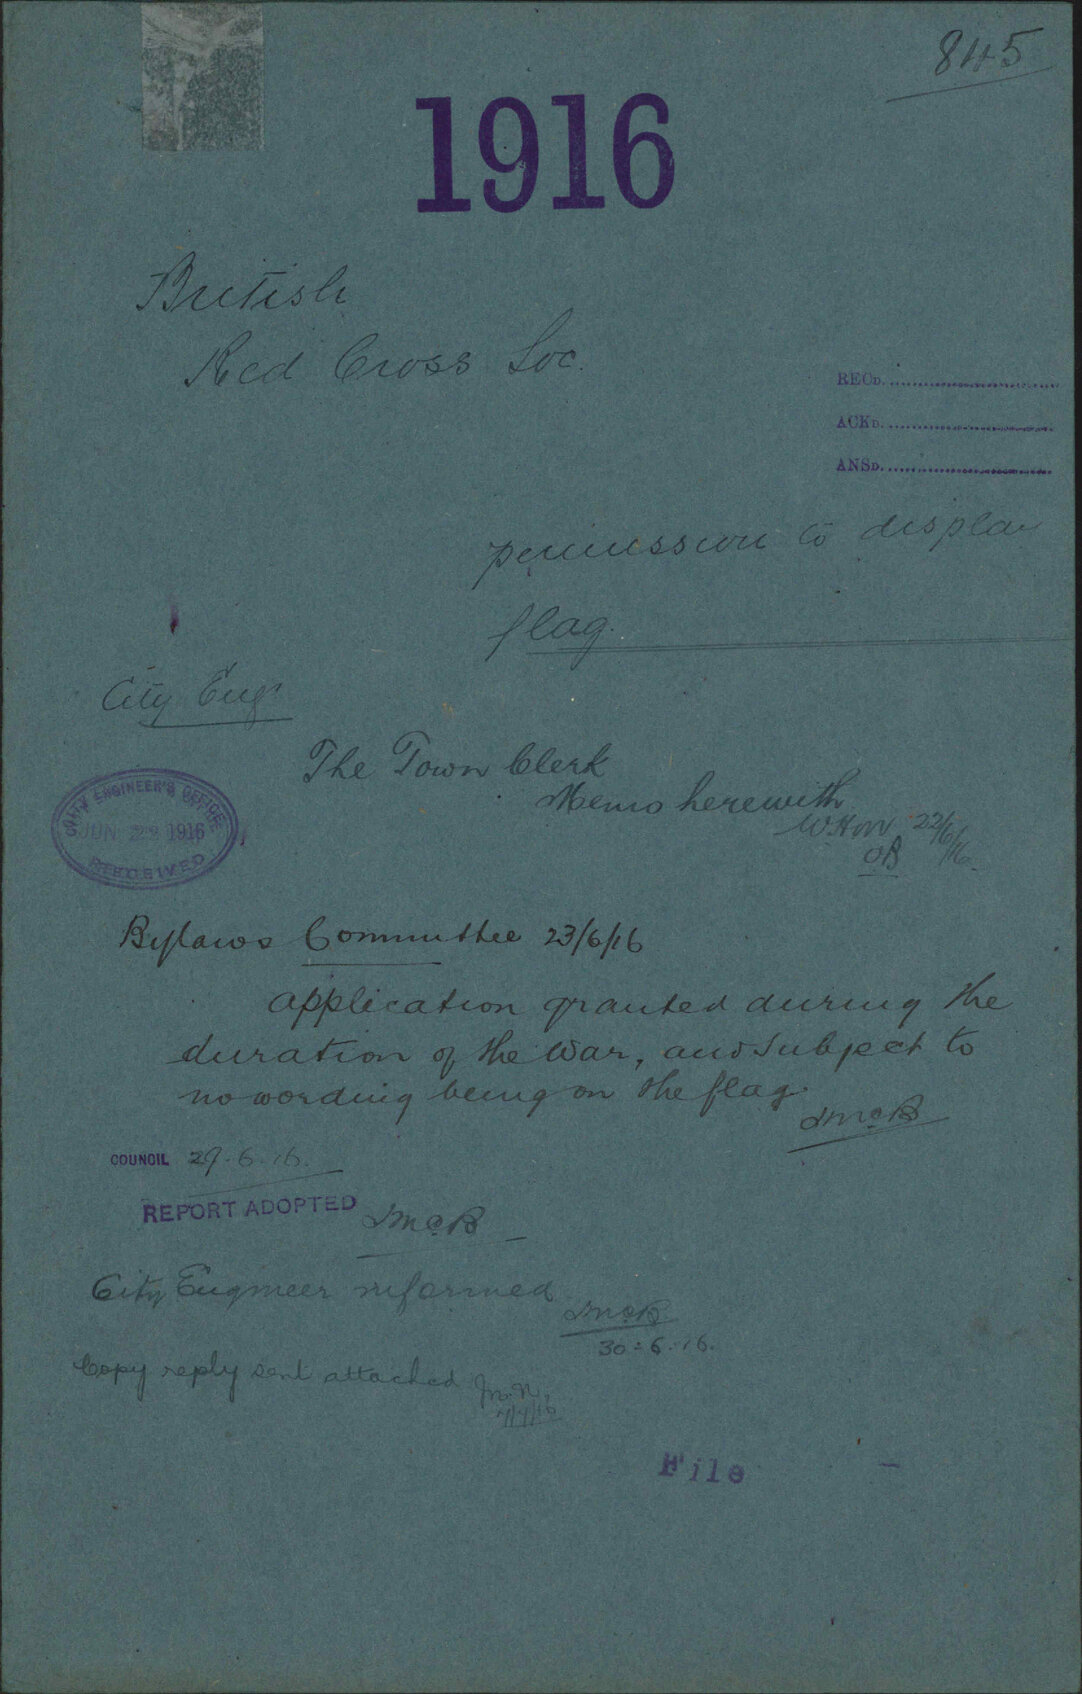 845
1916
British
Red Cross Soc.
RECD.
ACKD.
ANSD.
permission to display
flag.
City Engr
The Town Clerk
Memo herewith
22/6/16
CITY ENGINEER'S OFFICE
JUN 22 1916
RECEIVED
Bylaws Committee 23/6/16
application granted during the
duration of the War, and subject to
no wording being on the flag.
JMcB
COUNCIL 29.6.16.
REPORT ADOPTED JMcB
City Engineer informed
JMcB
30.6.16.
Copy reply sent attached
7/7/16
File